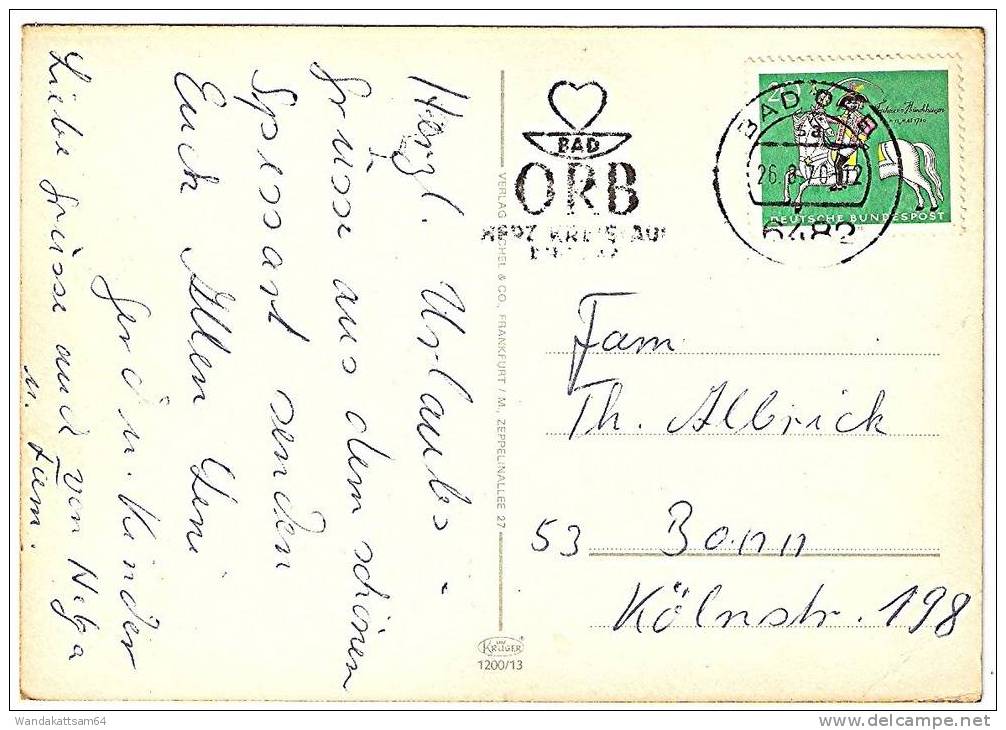 Herzl. Urlaubs-
Grüsse aus dem schönen
Spessart senden
Euch Allen Leni
Gerd u. Kinder
Liebe Grüsse auch von Helga
u. Fam.
VERLAG & CO., FRANKFURT / M., ZEPPELINALLEE 27
BAD
ORB
BAD ORB
sa
26.8.70-12
6482
DEUTSCHE BUNDESPOST
Fam.
Th. Albrick
53 Bonn
Kölnstr. 198
KRÜGER
1200/13
Wandakattsam64
www.delcampe.net